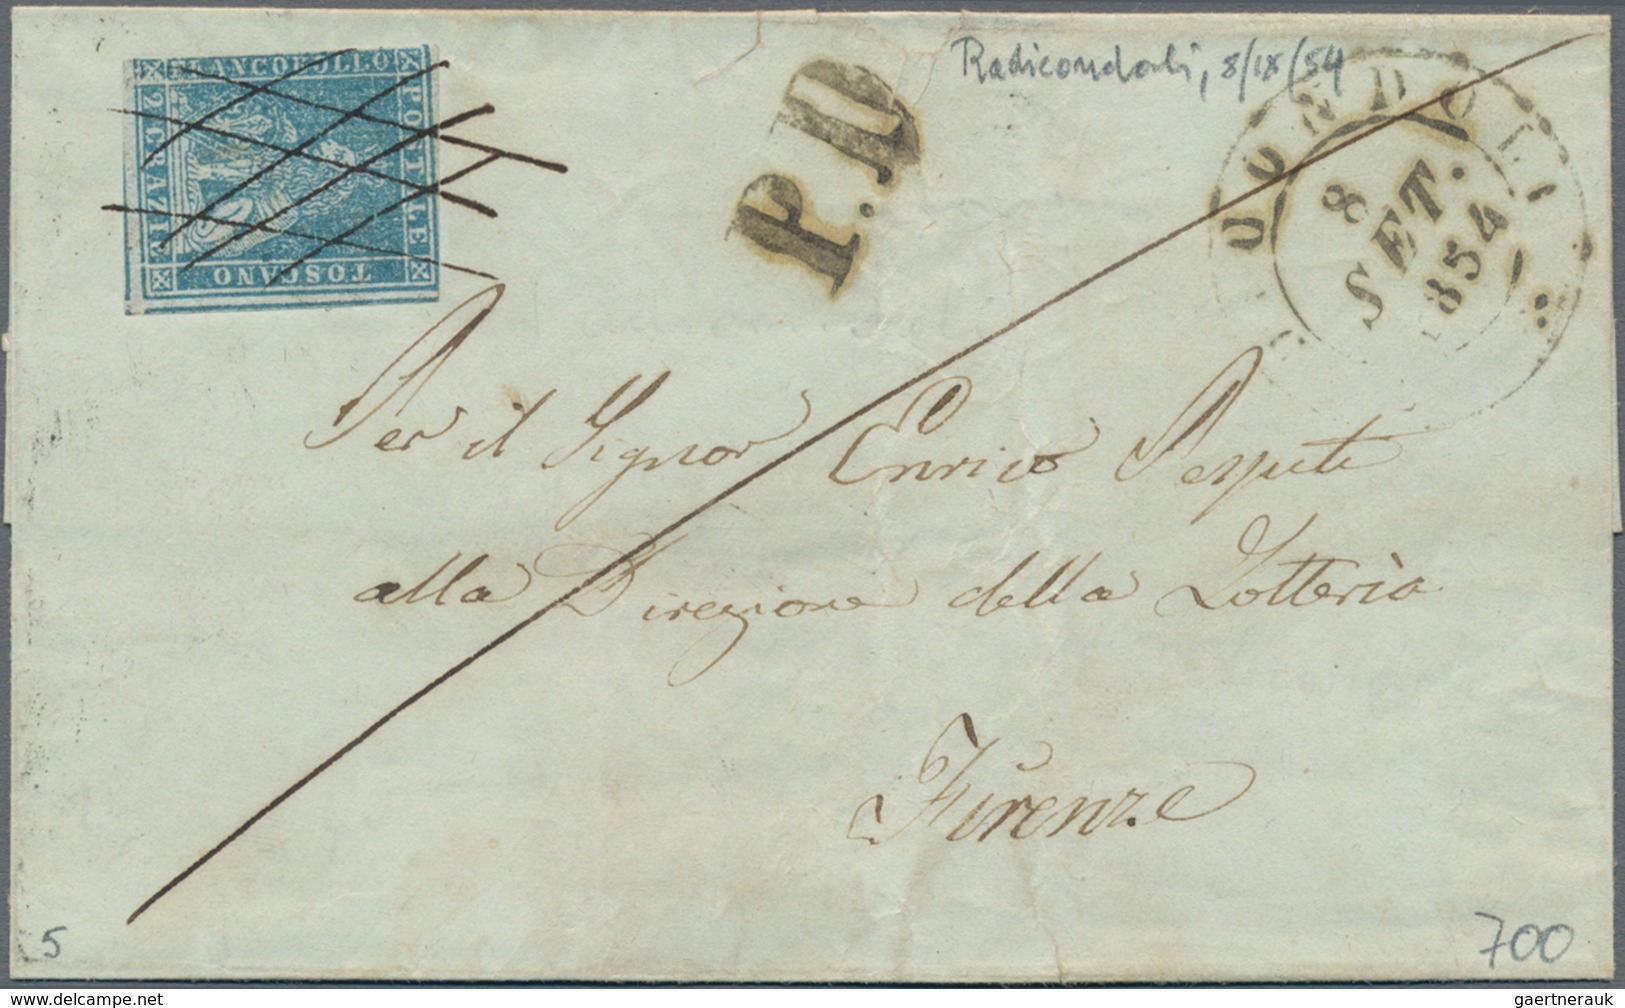 FRANCOBOLLO
POSTALE
2 CRAZIE
TOSCANO
P.D
Radicondoli, 8/IX/54
8
SET.
1854
Per il Signor Enrico
alla Direzione della Lotteria
Firenze
5
700
gaertnerauk